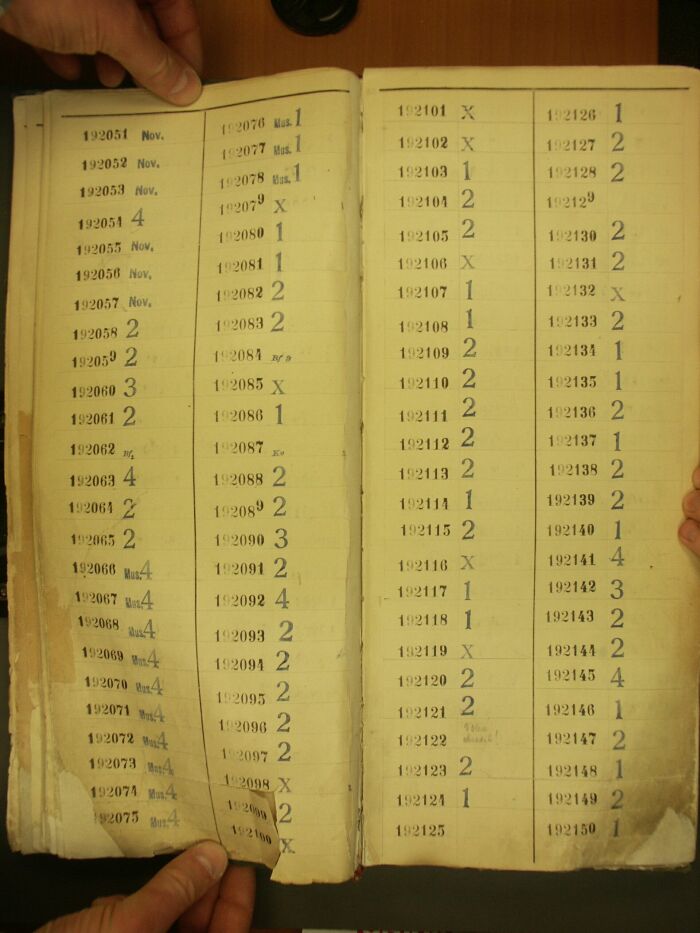 192051 Nov.
192052 Nov.
192053 Nov.
192054 4
192055 Nov.
192056 Nov.
192057 Nov.
192058 2
192059 2
192060 3
192061 2
192062
192063 4
192064 2
192065 2
192066 Mus. 4
192067 Mus. 4
192068 Mus. 4
192069 Mus. 4
192070 Mus. 4
192071 Mus. 4
192072 Mus. 4
192073 Mus. 4
192074 Mus. 4
192075 Mus. 4
192076 Mus. 1
192077 Mus. 1
192078 Mus. 1
192079 X
192080 1
192081 1
192082 2
192083 2
192084
192085 X
192086 1
192087
192088 2
192089 2
192090 3
192091 2
192092 4
192093 2
192094 2
192095 2
192096 2
192097 2
192098 X
192099 2
192100 X
192101 X
192102 X
192103 1
192104 2
192105 2
192106 X
192107 1
192108 1
192109 2
192110 2
192111 2
192112 2
192113 2
192114 1
192115 2
192116 X
192117 1
192118 1
192119 X
192120 2
192121 2
192122
192123 2
192124 1
192125
192126 1
192127 2
192128 2
192129
192130 2
192131 2
192132 X
192133 2
192134 1
192135 1
192136 2
192137 1
192138 2
192139 2
192140 1
192141 4
192142 3
192143 2
192144 2
192145 4
192146 1
192147 2
192148 1
192149 2
192150 1